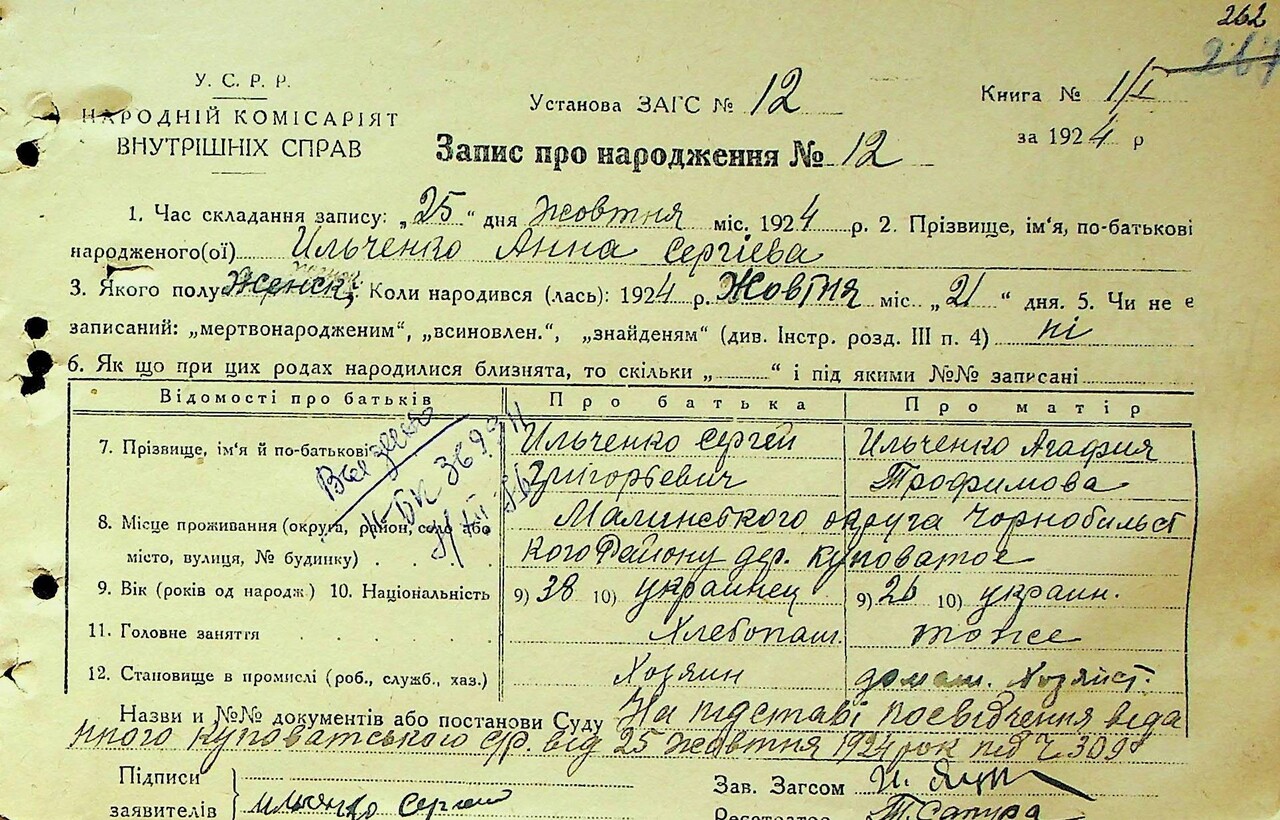 262
267
У. С. Р. Р.
НАРОДНІЙ КОМІСАРІЯТ
ВНУТРІШНІХ СПРАВ
Установа ЗАГС № 12
Книга № 1/I
за 1924 р
Запис про народження № 12
1. Час складання запису: „25" дня жовтня міс. 1924 р. 2. Прізвище, ім'я, по-батькові
народженого(ої) Ильченко Анна Сергієва
3. Якого полу Женск. Коли народився (лась): 1924 р. Жовтня міс. „21" дня. 5. Чи не є
записаний: „мертвонародженим", „всиновлен.", „знайденям" (див. Інстр. розд. III п. 4) ні
6. Як що при цих родах народилися близнята, то скільки „ " і під якими №№ записані
Відомості про батьків Про батька Про матір
7. Прізвище, ім'я й по-батькові Ильченко Сергей Ильченко Агафия
Григорьевич Трофимова
8. Місце проживання (округа, район, село або Малинського округа Чорнобильст
місто, вулиця, № будинку) кого Району дер. Куповатое
9. Вік (років од народж) 10. Національність 9) 38 10) украинец 9) 26 10) украин.
11. Головне заняття Хлебопаш. тоже
12. Становище в промислі (роб., служб., хаз.) Хозяин домаш. Хозяйст.
Назви и №№ документів або постанови Суду На підставі посвідчення віда
нного Куповатського с/р. від 25 жовтня 1924 рок під Ч 309
Підписи
заявителів Ильченко Сергей
Зав. Загсом